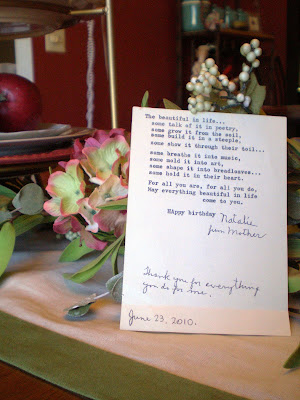 The beautiful in life...
some talk of it in poetry,
some grow it from the soil,
some build it in a steeple,
some show it through their toil...
some breathe it into music,
some mold it into art,
some shape it into breadloaves...
some hold it in their heart.
For all you are, for all you do,
May everything beautiful in life
come to you.
Happy birthday Natalie
from Mother
Thank you for everything
you do for me.
June 23, 2010.